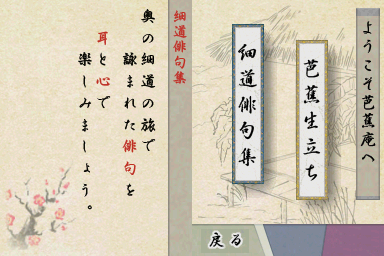 ようこそ芭蕉庵へ
芭蕉生立ち
細道俳句集
細道俳句集
奥の細道の旅で
詠まれた俳句を
耳と心で
楽しみましょう。
戻る